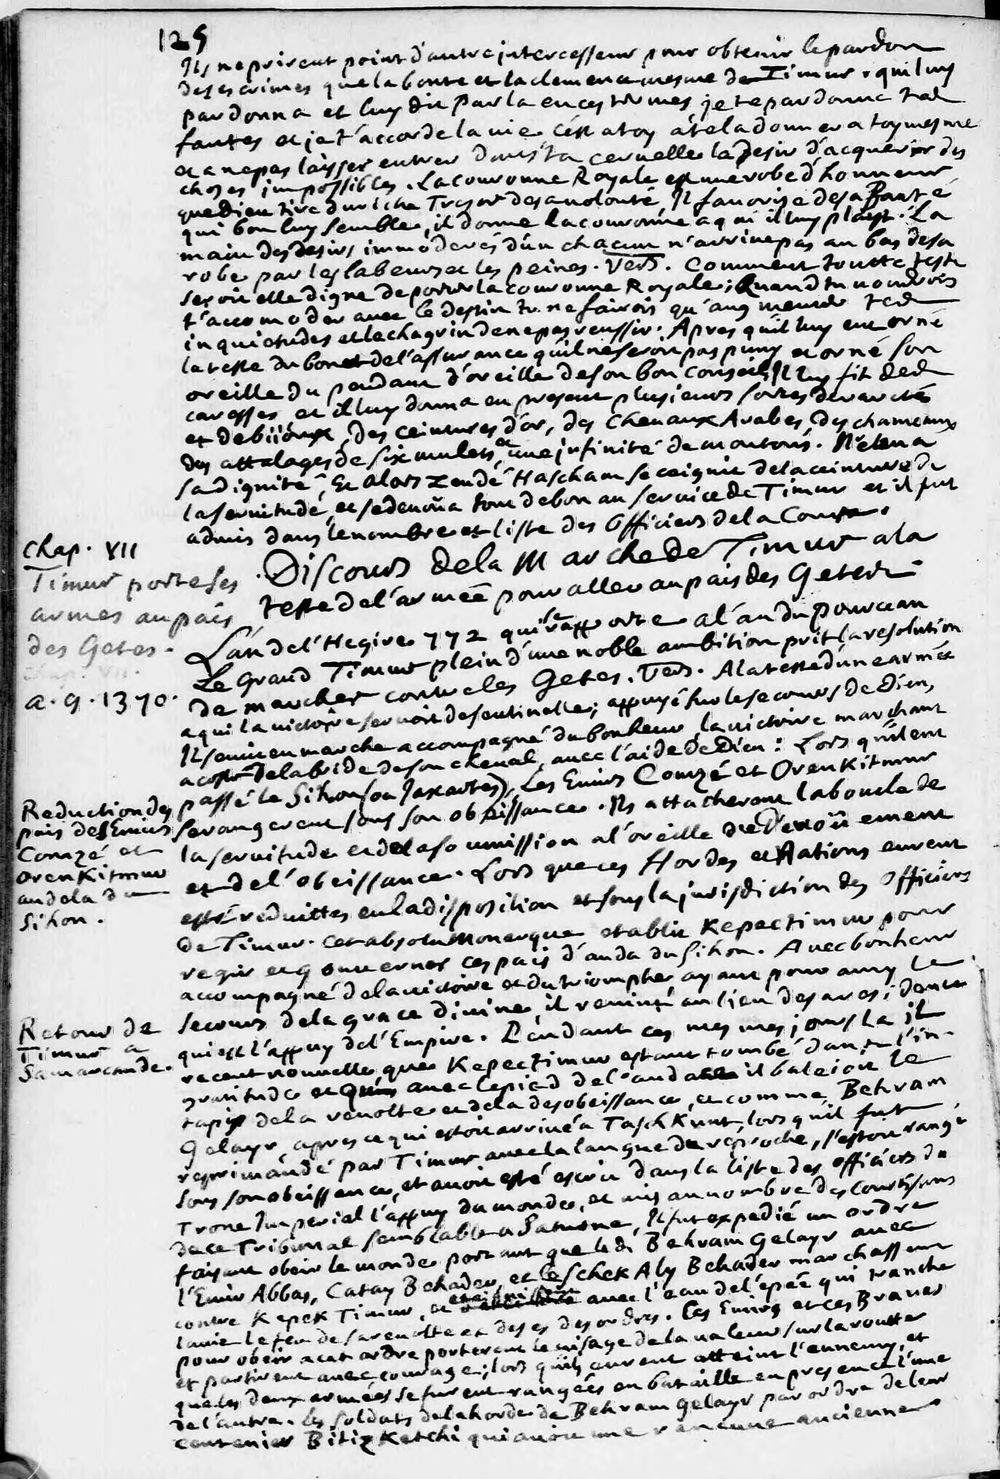 125
Ils ne prirent point d'autre intercesseur pour obtenir le pardon
de ses crimes que la bonté et la clemence mesme de Timur, qui luy
pardonna et luy dit parla en ces termes je te pardonne tes
fautes et je t'accorde la vie. C'est a toy a te la donner a toy mesme
et a ne pas laisser entrer dans ta cervelle le desir d'acquerir des
choses impossibles. La couronne Royale est une robe d'honneur
que Dieu tire du riche Tresor de sa volonté. Il favorise de sa Bonté
qui bon luy semble, il donne la couronne a qui il luy plaist. La
main des desirs immoderés d'un chacun n'arrive pas au bas de sa
robe par les labeurs et les peines. Vers. Comment toutte teste
seroit elle digne de porter la couronne Royale; Quand tu voudrois
t'accomoder avec le destin tu ne fairois qu'augmenter tes
inquietudes et le chagrin de ne pas reussir. Apres qu'il luy eut orné
la teste du bonet de l'assurance qu'il ne seroit pas puny et orné son
oreille du pendant d'oreille de son bon conseil, Il luy fit des
caresses et il luy donna en present plusieurs sortes de raretés
et de bijoux, des ceintures d'or, des Chevaux Arabes, des chameaux
des attalages de six mulets, et une infinité de moutons. Il eleva
sa dignité, Et alors Zendé Hascham se ceignit de la ceinture de
la servitude, et se devoüa tout de bon au service de Timur et il fut
admis dans le nombre et liste des Officiers de la Cour.
Chap. VII
Timur porte ses
armes au païs
des Getes.
a. 9. 1370.
Discours de la Marche de Timur a la
teste de l'armée pour aller au païs des Getes
L'an de l'Hegire 772 qui se rapporte a l'an du pourceau
Le Grand Timur plein d'une noble ambition prit la resolution
de marcher contre les Getes. Vers. A la teste d'une armée
a qui la victoire servoit de sentinelle; appuyé sur le secours de Dieu,
Il se mit en marche accompagné du bonheur, la victoire marchant
a costé de la bride de son cheval, avec l'aide de Dieu: Lors qu'il eut
passé le Sihon (ou Jaxartes), Les Emirs Comzé et Orenkitmur
se rangerent sous son obeissance. Ils attacherent la boucle de
la servitude et de la soumission a l'oreille de Devoüement
et de l'obeissance. Lors que ces Hordes et Nations eurent
esté reduittes en la disposition et sous la jurisdiction des Officiers
de Timur. Cet absolu Monarque etablit Kepectimur pour
regir et gouverner ces païs d'au da du Sihon. Avec bonheur
accompagné de la victoire et du triomphe ayant pour amy le
secours de la grace divine, il revint au lieu de sa residence
qui est l'appuy de l'Empire. Pendant ces mesmes jours la il
Reduction des
païs des Emirs
Comzé et
Orenkitmur
au dela du
Sihon.
Retour de
Timur a
Samarcande.
receut nouvelle que Kepectimur estant tombé dans l'in-
gratitude et avec le pied de l'audace il baleioit le
tapis de la revolte et de la desobeissance, et comme Behram
Gelayr apres ce qui estoit arrivé a Taschkunt, lors qu'il fut
reprimandé par Timur avec la langue de reproche, s'estoit rangé
sous son obeissence, et avoit esté escrit dans la liste des officiers du
Trone Imperial l'appuy du monde, et mis au nombre des Courtisans
de ce Tribunal semblable a Saturne, Il fut expedié un ordre
faisant obeir le monde portant que ledi Behram Gelayr avec
l'Emir Abbas, Catay Behader, et le Schek Aly Behader marchassent
contre Kepek Timur, et avec l'eau de l'épée qui tranche
la vie le feu de sa revolte et de ses desordres. Ces Emirs et ces Braves
pour obeir a cet ordre porterent le visage de la valeur sur la routte
et partirent avec courage; lors qu'ils eurent atteint l'ennemy, et
que les deux armées se furent rangées en bataille en presence l'une
de l'autre. Les soldats de la horde de Behram Gelayr par ordre de leur
centenier Bitiz Ketchi qui avoit une rencune ancienne